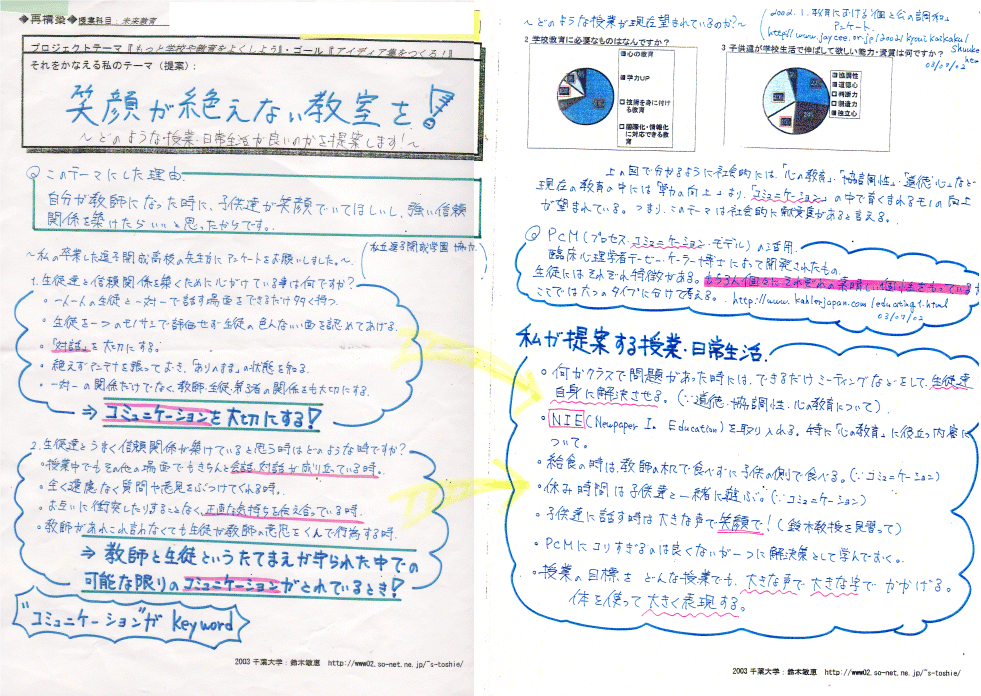 ◆再構築◆授業科目：未来教育
プロジェクトテーマ『もっと学校や教育をよくしよう』・ゴール『アイディア集をつくる！』
それをかなえる私のテーマ（提案）：
笑顔が絶えない教室を！
～どのような授業・日常生活が良いのかを提案します！～
◎このテーマにした理由.
自分が教師になった時に、子供達が笑顔でいてほしいし、強い信頼
関係を築けたらいいと思ったからです。
（私立逗子開成学園 協力.）
～私の卒業した逗子開成高校の先生方にアンケートをお願いしました。～
1. 生徒達と信頼関係を築くために心がけている事は何ですか？
・一人一人の生徒と一対一で話す場面をできるだけ多く持つ.
・生徒を一つのモノサシで評価せず生徒の色んないい面を認めてあげる.
・「対話」を大切にする。
・絶えずアンテナを張っておき、「ありのまま」の状態を知る.
・一対一の関係だけでなく、教師、生徒、第3者の関係をも大切にする.
⇒ コミュニケーションを大切にする！
2. 生徒達とうまく信頼関係が築けていると思う時はどのような時ですか？
・授業中でもその他の場面でもきちんと会話、対話が成り立っている時。
・全く遠慮なく質問や意見をぶつけてくれる時.
・お互いに衝突したりすることなく、正直な気持ちを伝え合っている時.
・教師があれこれ言わなくても生徒が教師の意思をくんで行動する時.
⇒ 教師と生徒というたてまえが守られた中での
可能な限りのコミュニケーションがとれているとき！
"コミュニケーションがKeyword"
2003 千葉大学：鈴木敏恵 http://www02.so-net.ne.jp/~s-toshie/
～どのような授業が現在望まれているのか？～
2002.1.教育における「個と公の調和」
アンケート
(http://www.jaycee.or.jp/2002/kyouikukaikaku/
03/07/02
2 学校教育に必要なものはなんですか？
心の教育
学力UP
技術を身に付ける教育
国際化・情報化に対応できる教育
3 子供達が学校生活で伸ばして欲しい能力・資質は何ですか？
協調性
道徳心
判断力
創造力
独立心
上の図で分かるように社会的には、「心の教育」、「協調性」、「道徳心」など
現在の教育の中には「学力の向上」より、「コミュニケーション」の中で育くまれるモノの向上
が望まれている。つまり、このテーマは社会的に貢献度があると言える。
◎ PCM (プロセス・コミュニケーション・モデル) の活用.
臨床心理学者テービー・ケーラー博士によって開発されたもの.
生徒にはそれぞれ特徴がある。もちろん個々にそれぞれの素晴しい個性をもっているが
ここでは六つのタイプに分けて考える。http://www.kahlerjapan.com/educating1.html
03/07/02
私が提案する授業・日常生活.
・何かクラスで問題があった時には、できるだけミーティングなどをして、生徒達
自身に解決させる。(∵道徳・協調性・心の教育について).
・NIE (Newpaper In Education) を取り入れる。特に「心の教育」に役立つ内容に
ついて。
・給食の時は、教師の机で食べずに子供の側で食べる。(∵コミュニケーション)
・休み時間は子供達と一緒に遊ぶ。(∵コミュニケーション)
・子供達に話す時は大きな声で笑顔で！(鈴木教授を見習って)
・PCMにコリすぎるのは良くないが一つに解決策として学んでおく。
・授業の目標を どんな授業でも、大きな声で大きな字で かかげる。
体を使って大きく表現する。
2003 千葉大学：鈴木敏恵 http://www02.so-net.ne.jp/~s-toshie/